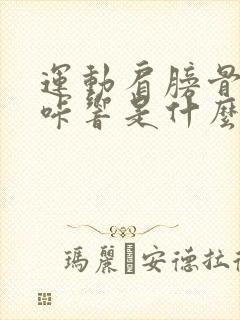 運動肩膀骨
咔響是什麼
瑪麗 安德拉